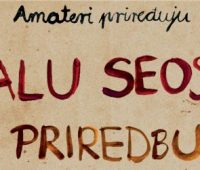 Amateri priređuju
ALU SEOS
PRIREDBU